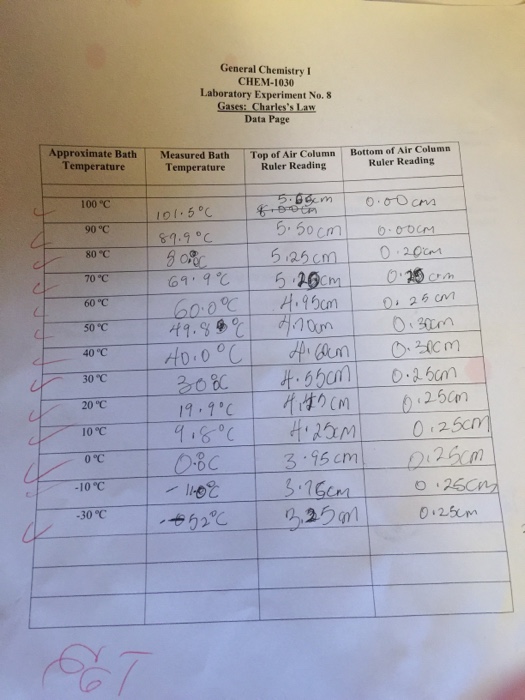 General Chemistry I
CHEM-1030
Laboratory Experiment No. 8
Gases: Charles's Law
Data Page
Approximate Bath Temperature Measured Bath Temperature Top of Air Column Ruler Reading Bottom of Air Column Ruler Reading
100 °C 101.5°C 0.00cm
90 °C 89.9°C 5.50cm 0.00cm
80 °C 5.25cm 0.20cm
70 °C 69.9°C 5.20cm
60 °C 60.0°C 4.95cm 0.25cm
50 °C 4.70cm 0.30cm
40 °C 40.0°C 0.30cm
30 °C 4.55cm 0.25cm
20 °C 19.9°C 0.25cm
10 °C 9.8°C 4.25cm 0.25cm
0 °C 3.95cm 0.25cm
-10 °C 0.25cm
-30 °C 3.25cm 0.25cm